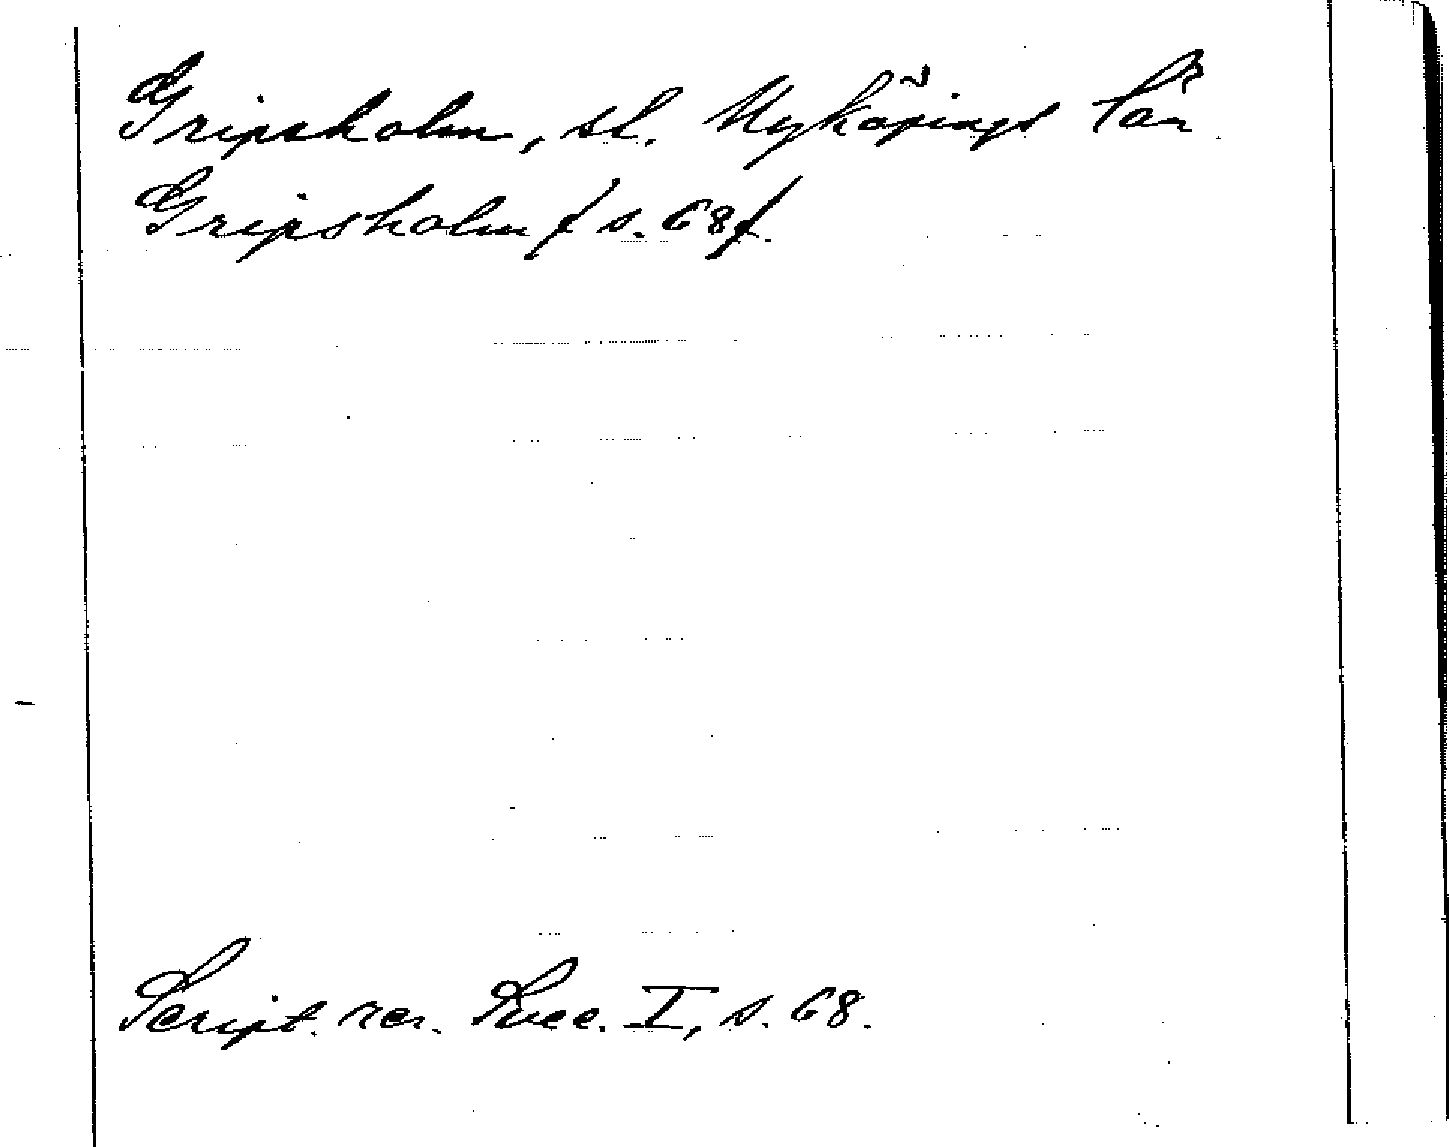 Gripsholm, sl. Nyköpings län
Gripsholm / s. 68/.
Script. rer. Svec. I, s. 68.